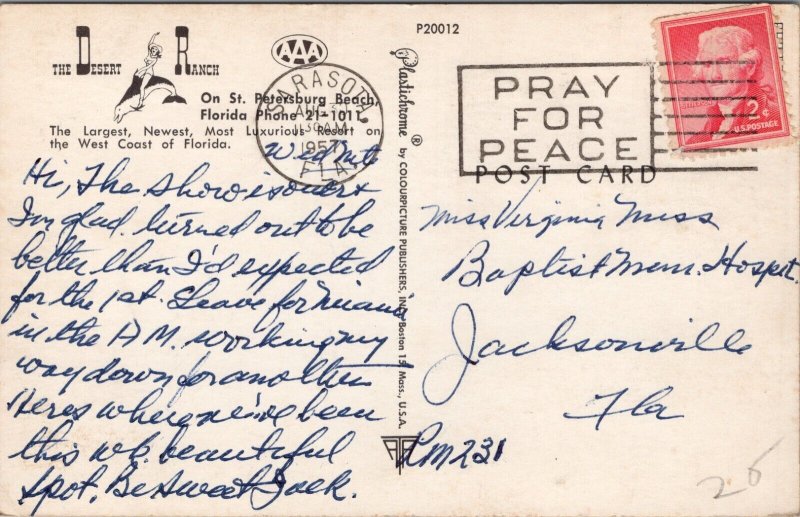 P20012
THE DESERT RANCH
AAA
On St. Petersburg Beach,
Florida Phone 21-1011
The Largest, Newest, Most Luxurious Resort on
the West Coast of Florida.
SARASOTA,
1957
FLA.
PRAY
FOR
PEACE
U.S. POSTAGE
POST CARD
Plastichrome ® by COLOURPICTURE PUBLISHERS, INC., Boston 15, Mass., U.S.A.
Wed Nite
Hi, The show is over &
I'm glad. turned out to be
better than I'd expected
for the 1st. Leave for Miami
in the A.M. working my
way down for another.
Heres where we've been
this wk. beautiful
spot. Be Sweet Jack.
Miss Virginia Miss
Baptist Mem. Hospit.
Jacksonville
Fla
Rm 231
26